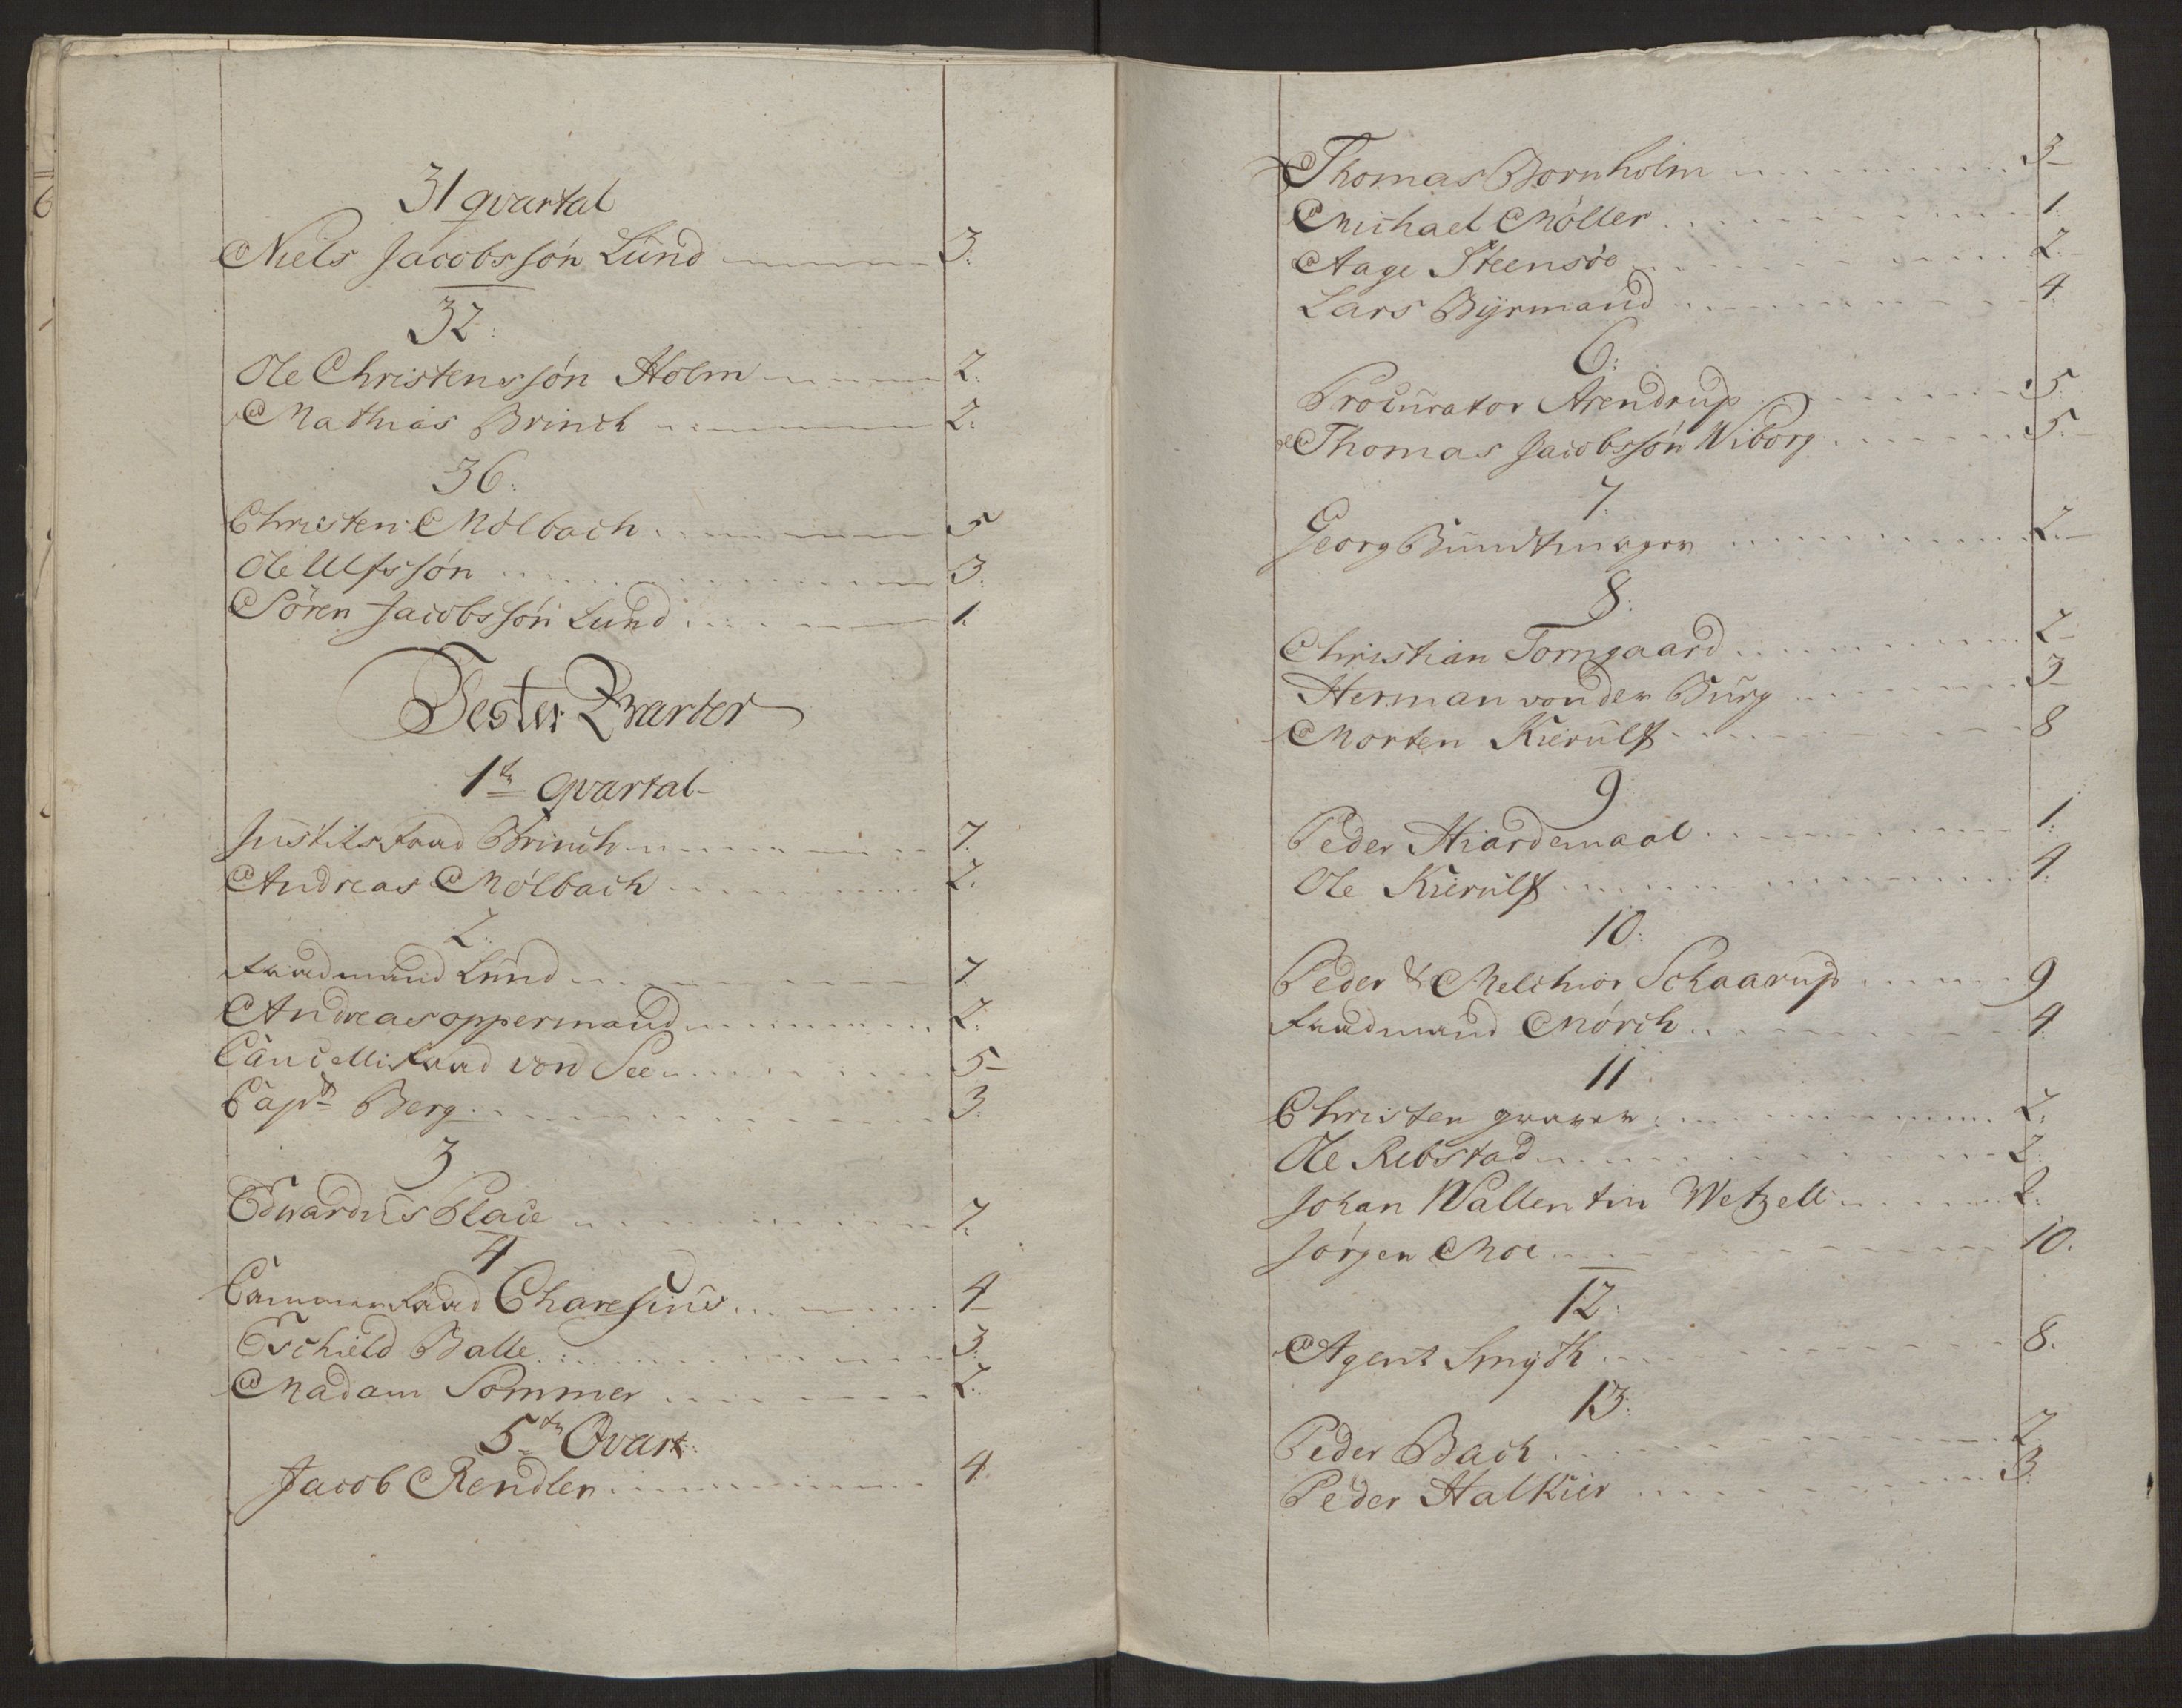 31 qvartal
Niels Jacobssøn Lund 3.
32:
Ole Christenssøn Holm 2.
Mathias Brinch 2.
36.
Christen Mølbach 5
Ole Ulfssøn 3.
Søren Jacobssøn Lund 1.
Vester Qvarter
1te qvartal
Justitsraad Brinch 7.
Andreas Mølbach 2.
2.
raadmand Lund 7
Andreas oppermand 2.
Cancelliraad von See 5
Capt Berg 3.
3
Edvardus Place 7.
4
Cammerraad Charesius 4
Eschield Balle 3.
Madam Sommer 2.
5te Qvart:
Jacob Rendler 4.
Thomas Bornholm 3
Michael Møller 1.
Aage Steensøe 2.
Lars Byrmand 4.
6:
Procurator Arendrup 5.
Thomas Jacobssøn Wiborg 5.
7.
Georg Bundtmager 2.
8.
Christian Torngaard 2
Herman von der Burg 3
Morten Kierulf 8
9
Peder Hiardemaal 1.
Ole Kierulf 4.
10.
Peder & Melchior Schaarup 9
raadmand Mørch 4.
11
Christen graver 2.
Ole Rebstad 2.
Johan Wallentin Wetzell 2.
Jørgen Moe 10.
12.
Agent Smyth 8.
13.
Peder Bach 2.
Peder Halkier 3.